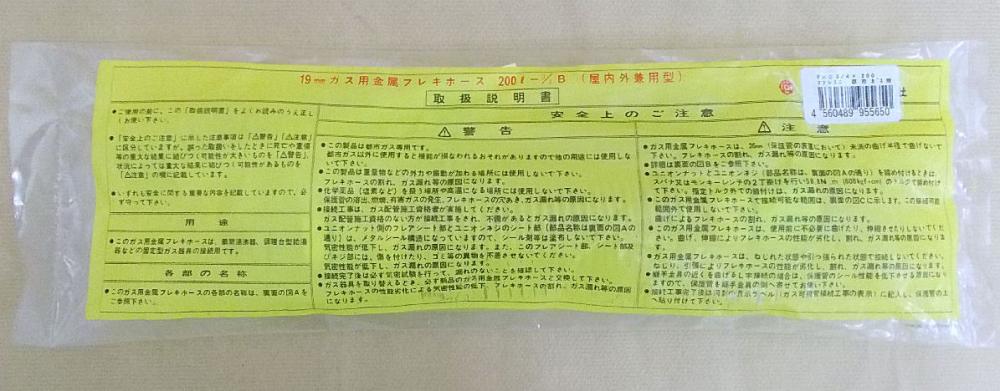 19mm ガス用金属フレキホース 200ℓ-□/B (屋内外兼用型)
取扱説明書
社
4 560489 955650
●ご使用の前に、この「取扱説明書」をよくお読みのうえ正しくお使い下さい。
●「安全上のご注意」に示した注意事項は「⚠警告」「⚠注意」
に区分していますが、誤った取扱いをしたときに死亡や重傷
等の重大な結果に結びつく可能性が大きいものを「⚠警告」、
状況によっては重大な結果に結びつく可能性があるものを
「⚠注意」の欄に記載しています。
●いずれも安全に関する重要な内容を記載していますので、必
ず守って下さい。
用途
●このガス用金属フレキホースは、
器などの固定型ガス器具の接続用です。
各部の名称
●このガス用金属フレキホースの各部の名称は、裏面の図Aを
ご参照下さい。
安全上のご注意
⚠ 警告
●この製品は都市ガス専用です。
都市ガス以外に使用すると機能が損なわれるおそれがありますので他の用途には使用し
ないで下さい。
●この製品は重量物などの外力や振動が加わる場所には使用しないで下さい。
フレキホースの割れ、ガス漏れ等の原因になります。
●化学薬品(塩素など)を扱う場所や高温になる場所には使用しないで下さい。
保護管の溶出、燃焼、有害ガスの発生、フレキホースの穴あき、ガス漏れ等の原因になります。
●接続工事は、ガス配管施工資格者が実施してください。
ガス配管施工資格のない方が接続工事をされ、不備があるとガス漏れの原因になります。
●ユニオンナット側のフレアシート部とユニオンネジのシート部(部品名称は裏面の図Aの
通り)は、メタルシール構造になっていますので、シール剤等は塗布しないで下さい。
気密性能が低下し、ガス漏れの原因になります。また、このフレアシート部、シート部及
びネジ部には、傷を付けたり、ゴミ等の異物を不着させないでください。
気密性能が低下し、ガス漏れの原因になります。
●接続完了後は必ず気密試験を行って、漏れのないことを確認して下さい。
●ガス器具を取り替えるとき、必ず新品のガス用金属フレキホースと交換して下さい。
フレキホースの性能劣化による気密性能の低下、フレキホースの割れ、ガス漏れ等の原因
になります。
⚠ 注意
●ガス用金属フレキホースは、
ないで下さい。フレキホースの割れ、ガス漏れ等の原因になります。
●詳細は裏面の図Bをご参照下さい。
●ユニオンナットとユニオンネジ(部品名称は、裏面の図Aの通り)を締め付けるときは、
スパナ又はモンキーレンチの2丁掛けを行い
て下さい。指定トルク外での締付けは、ガス漏れの原因になります。
●ガス用金属フレキホースで接続可能な範囲は、裏面の図Cに示します。この接続可能
範囲外で使用しないで下さい。
曲げによるフレキホースの割れ、ガス漏れ等の原因になります。
●ガス用金属フレキホースは、使用前に不必要に曲げたり、伸縮させたりしないでくだ
さい。曲げ、伸縮によりフレキホースの性能が劣化し、割れ、ガス漏れ等の原因になりま
す。
●ガス用金属フレキホースは、ねじれた状態や引っ張られた状態で接続しないでください。
ねじり、引張によりフレキホースの性能が劣化し、割れ、ガス漏れ等の原因になります。